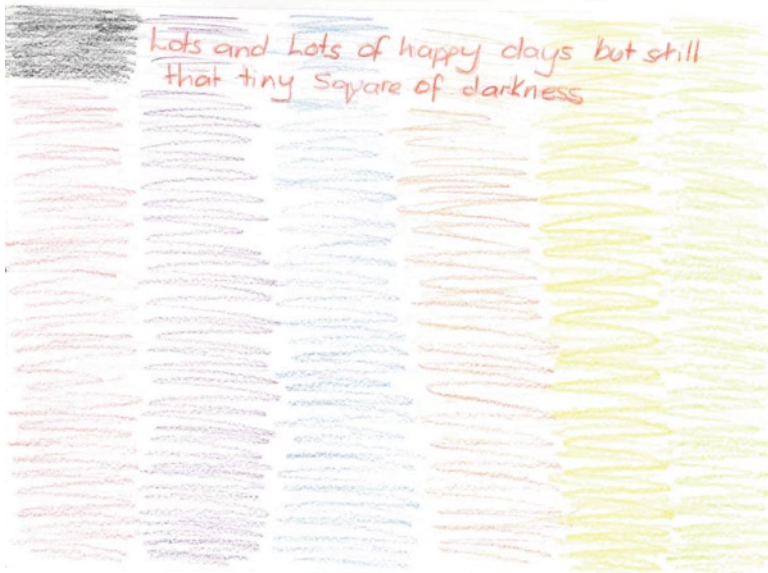 Lots and Lots of happy days but still
that tiny Square of darkness